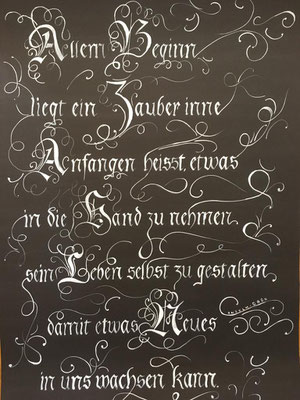 Allem Beginn
liegt ein Zauber inne
Anfangen heisst, etwas
in die Hand zu nehmen,
sein Leben selbst zu gestalten,
damit etwas Neues
in uns wachsen kann.